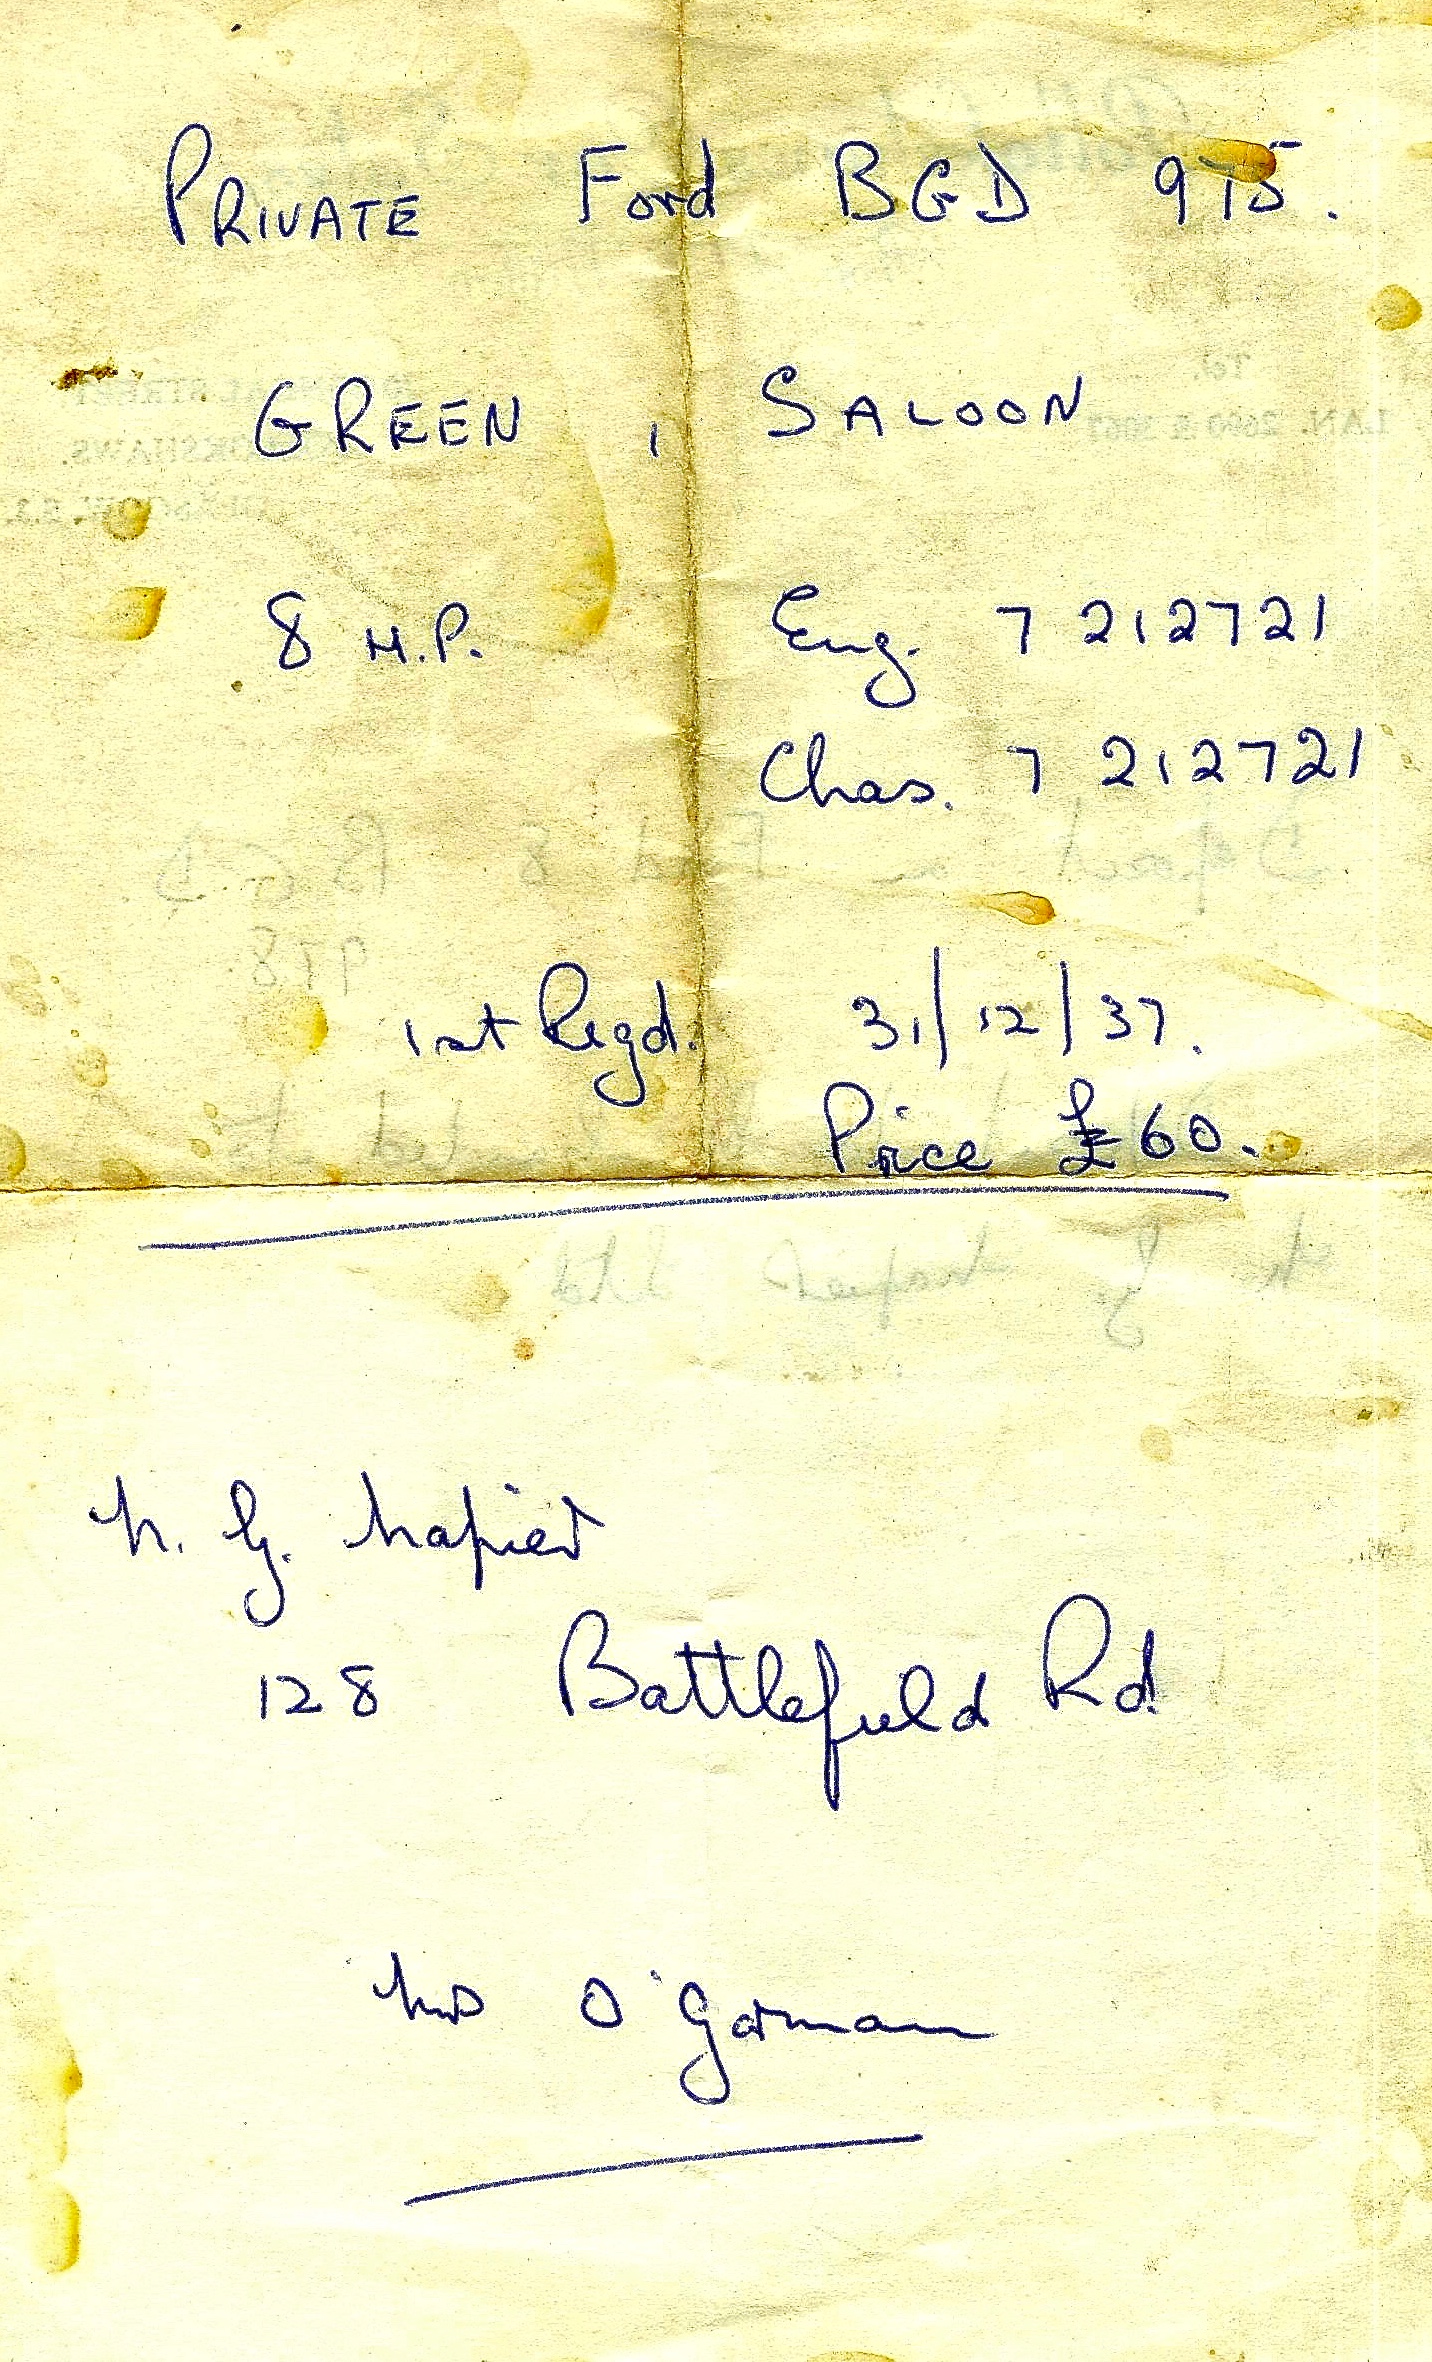 PRIVATE Ford BGD 975.
GREEN, SALOON
8 H.P. Eng. 7 212721
Chas. 7 212721
1st Regd. 31/12/37.
Price £60.
N. G. Napier
128 Battlefield Rd.
Mrs O'Gorman